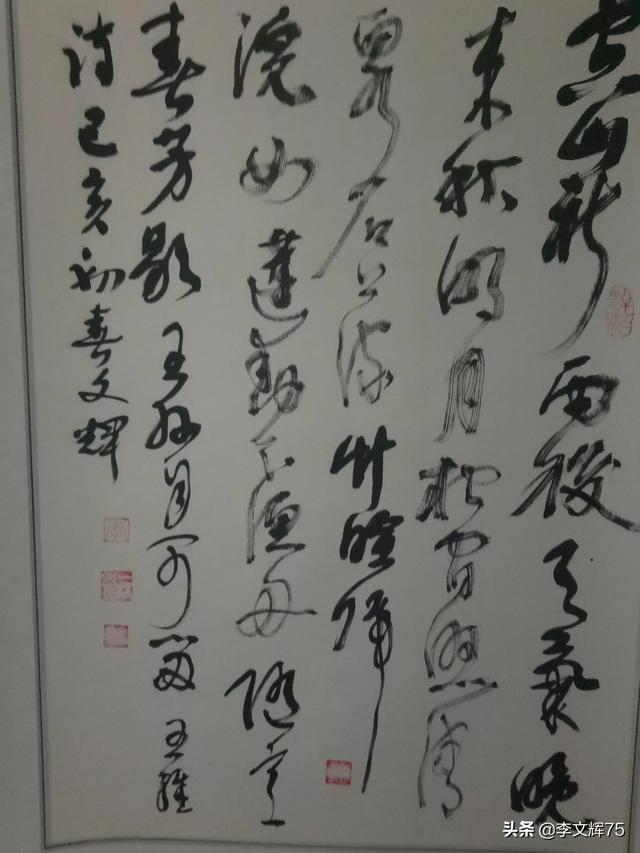 空山新雨後天氣晚
来秋明月松間照清
泉石上流竹喧歸
浣女蓮動下漁舟隨意
春芳歇王孫自可留王維
诗己亥初春文輝
头条 @李文辉75